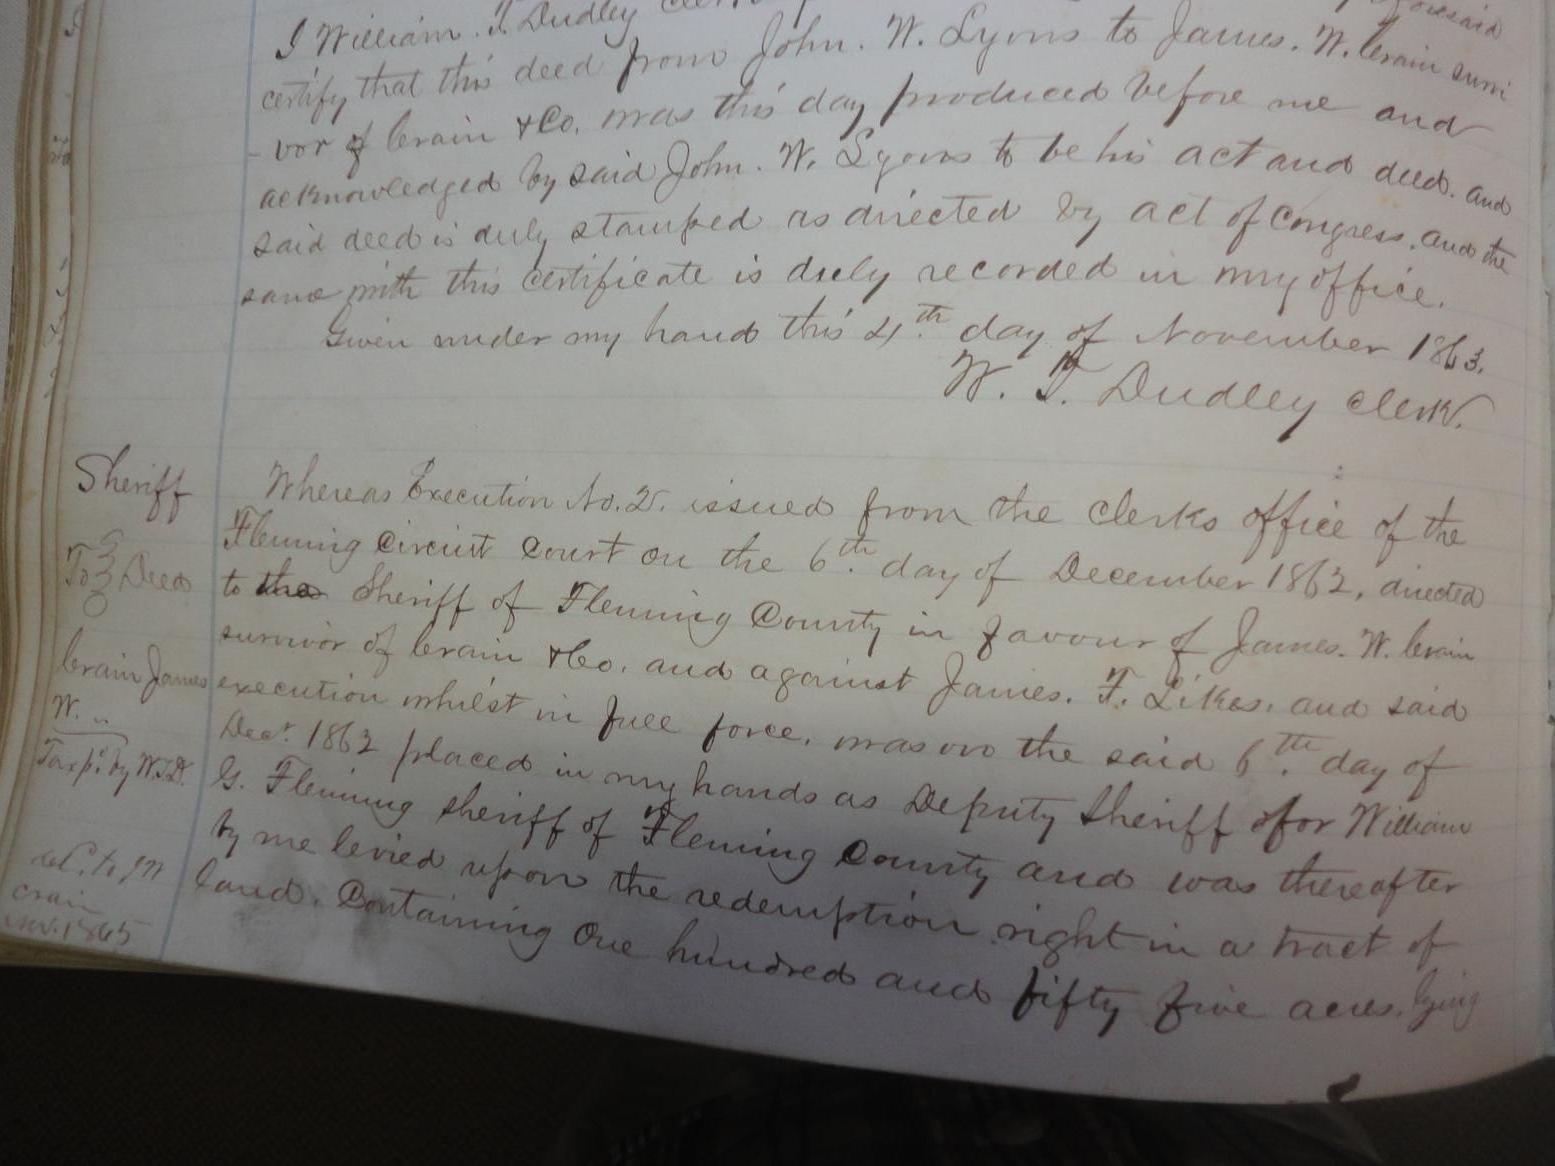 I William. T. Dudley Clerk aforesaid
certify that this deed from John. W. Lyons to James. W. Crain survi
-vor of Crain & Co. was this day produced before me and
acknowledged by said John. W. Lyons to be his act and deed. and
said deed is duly stamped as directed by act of Congress. and the
same with this certificate is duly recorded in my office.
Given under my hand this 4th. day of November 1863.
W. T. Dudley Clerk.
Sheriff
To } Deed
Crain James
W.
Tax pd. by W.T.D.
del. to J W
Crain
Nov. 1865
Whereas Execution No. 2. issued from the Clerks office of the
Fleming Circuit Court on the 6th. day of December 1862, directed
to the Sheriff of Fleming County in favour of James. W. Crain
survivor of Crain & Co. and against James. F. Likes. and said
execution whilst in full force, was on the said 6th. day of
Decr. 1862 placed in my hands as Deputy Sheriff for William
G. Fleming sheriff of Fleming County and was thereafter
by me levied upon the redemption right in a tract of
land. Containing One hundred and fifty five acres. lying